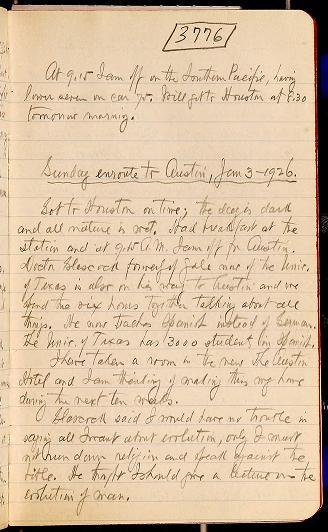 3776
At 9.15 I am off on the Southern Pacific, having
lower seven on car 95. Will get to Houston at 8.30
tomorrow morning.
Sunday enroute to Austin, Jan 3 - 1926.
Got to Houston on time; the day is dark
and all nature is wet. Had breakfast at the
station and at 9.15 A.M. I am off for Austin.
Doctor Glascock formerly of Yale now of the Univ.
of Texas is also on his way to Austin and we
spend the six hours together talking about all
things. He now teaches Spanish instead of German.
The Univ. of Texas has 3000 students in Spanish.
I have taken a room in the new Austin
Hotel and I am thinking of making this my home
during the next ten weeks.
Glascock said I would have no trouble in
saying all I want about evolution, only I must
not run down religion and speak against the
bible. He thought I should give a lecture on the
evolution of man.